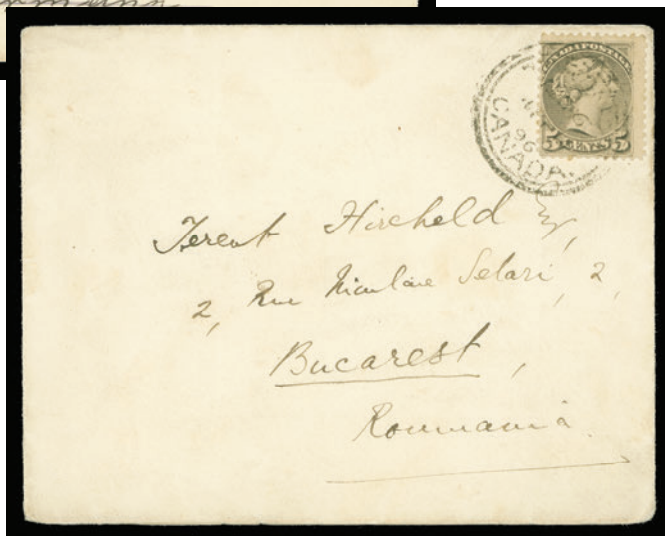 CANADA POSTAGE
5 CENTS 5
96
CANADA
Hircheld
2, Rue Niculae Selari, 2,
Bucarest,
Roumania